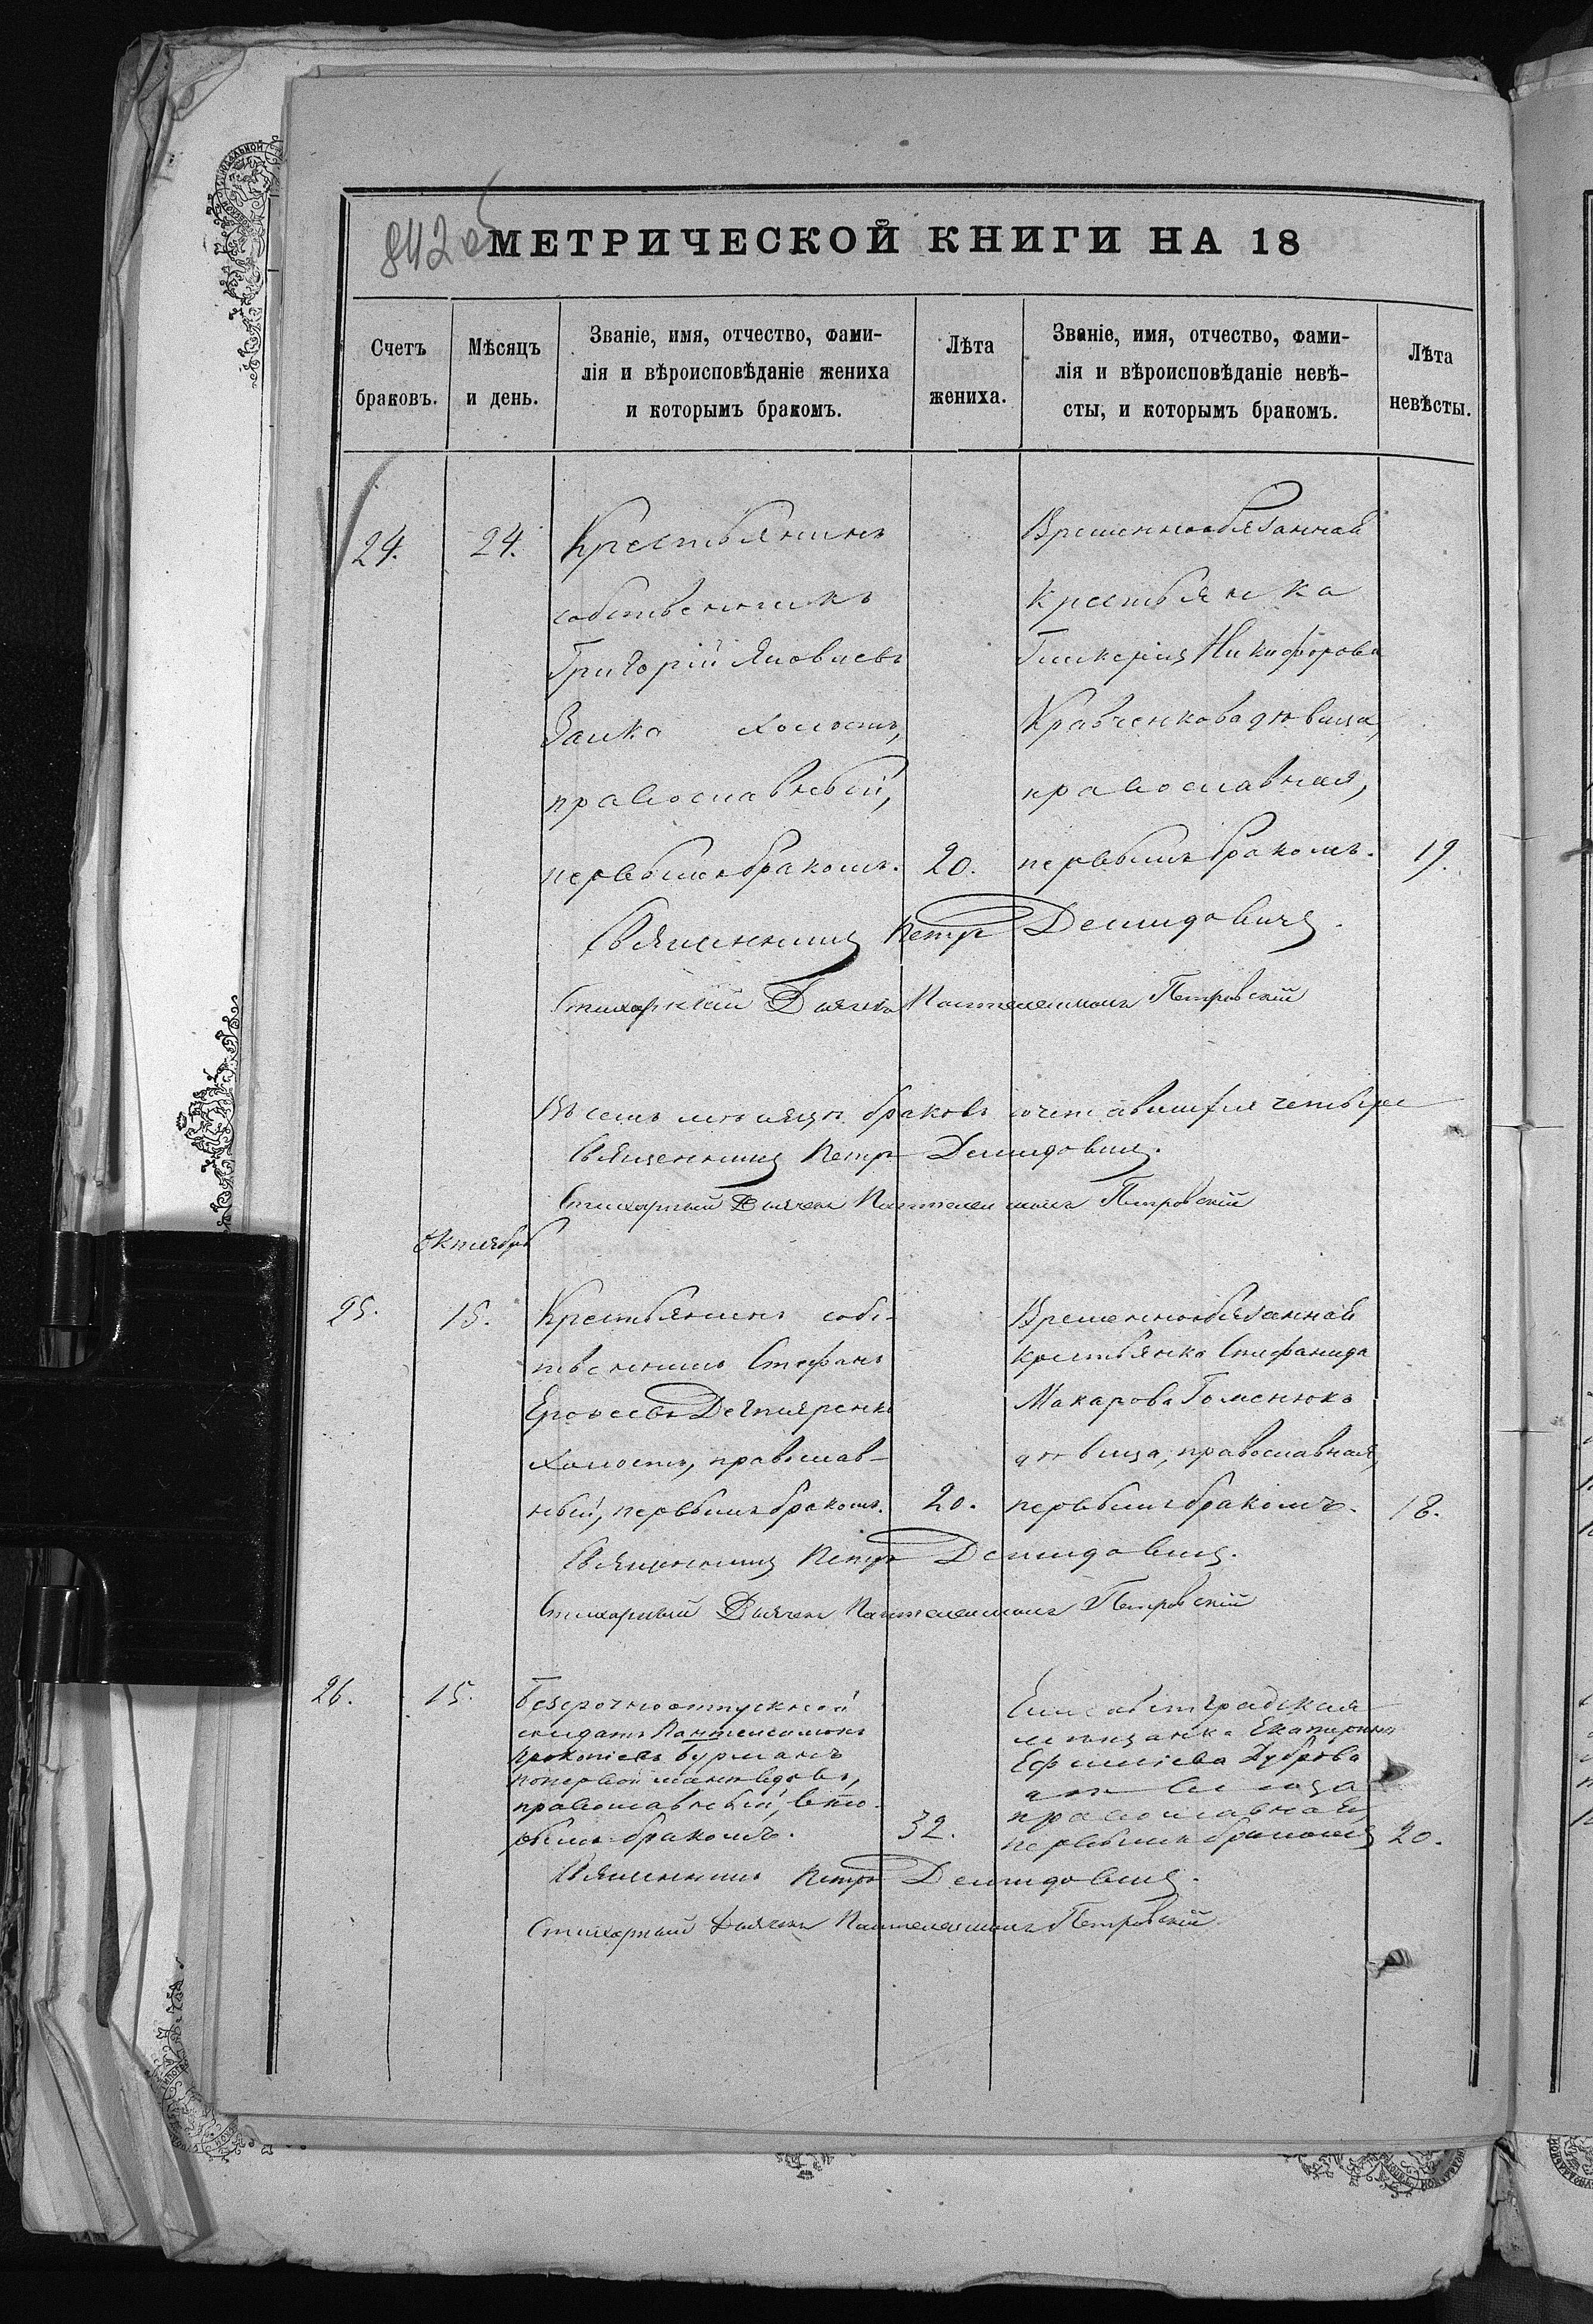 842 об
МЕТРИЧЕСКОЙ КНИГИ НА 18
Счетъ браковъ.
Мѣсяцъ и день.
Званіе, имя, отчество, фами-
лія и вѣроисповѣданіе жениха
и которымъ бракомъ.
Лѣта жениха.
Званіе, имя, отчество, фами-
лія и вѣроисповѣданіе невѣ-
сты, и которымъ бракомъ.
Лѣта невѣсты.
24. 24. Крестьянинъ
собственникъ
Григорій Яковлевъ
Заика холостъ,
православный,
первымъ бракомъ. 20.
Временнообязанная
крестьянка
Гликерія Никифорова
Кравченкова дѣвица,
православная,
первымъ бракомъ. 19.
Священникъ Петръ Демидовичъ.
Стихарный Дьячекъ Пантелеимонъ Петровскій
Въ семъ мѣсяцѣ браковъ сочетавшихся четыре
Священникъ Петръ Демидовичъ.
Стихарный Дьячекъ Пантелеимонъ Петровскій
Октябрь
25. 15. Крестьянинъ собс-
твенникъ Стефанъ
Ерофеевъ Дегтяренко
холостъ, православ-
ный, первымъ бракомъ. 20.
Временнообязанная
крестьянка Стефанида
Макарова Гоменюкъ
дѣвица, православная,
первымъ бракомъ. 18.
Священникъ Петръ Демидовичъ.
Стихарный Дьячекъ Пантелеимонъ Петровскій
26. 15. Безсрочноотпускной
солдатъ Пантелеимонъ
Прокопіевъ Бурманъ
по первой женѣ вдовъ,
православный, вто-
рымъ бракомъ. 32.
Елисаветградская
мѣщанка Екатерина
Ефиміева Дуброва
дѣвица
православная
первымъ бракомъ 20.
Священникъ Петръ Демидовичъ.
Стихарный Дьячекъ Пантелеимонъ Петровскій